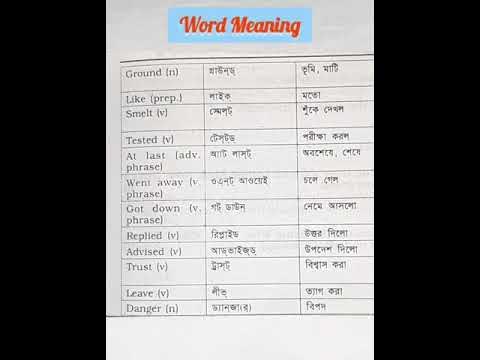 Word Meaning
Ground (n) গ্রাউন্ড্ ভূমি, মাটি
Like (prep.) লাইক মতো
Smelt (v) স্মেল্ট্ শুঁকে দেখল
Tested (v) টেস্টড পরীক্ষা করল
At last (adv. অ্যাট লাস্ট্ অবশেষে, শেষে
phrase)
Went away (v. ওএন্ট্ আওয়েই চলে গেল
phrase)
Got down (v. গট্ ডাউন নেমে আসলো
phrase)
Replied (v) রিপ্লাইড উত্তর দিলো
Advised (v) আড্ভাইজ্ড্ উপদেশ দিলো
Trust (v) ট্রাস্ট্ বিশ্বাস করা
Leave (v) লীভ্ ত্যাগ করা
Danger (n) ড্যানজা(র) বিপদ